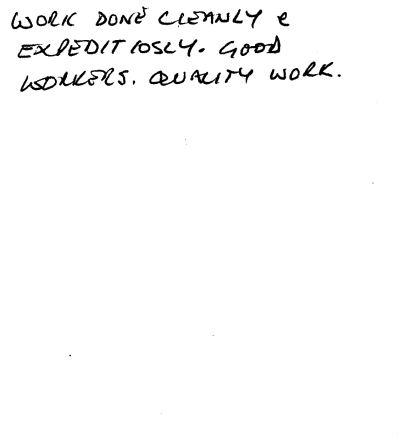 WORK DONE CLEANLY &
EXPEDITIOSLY. GOOD
WORKERS. QUALITY WORK.